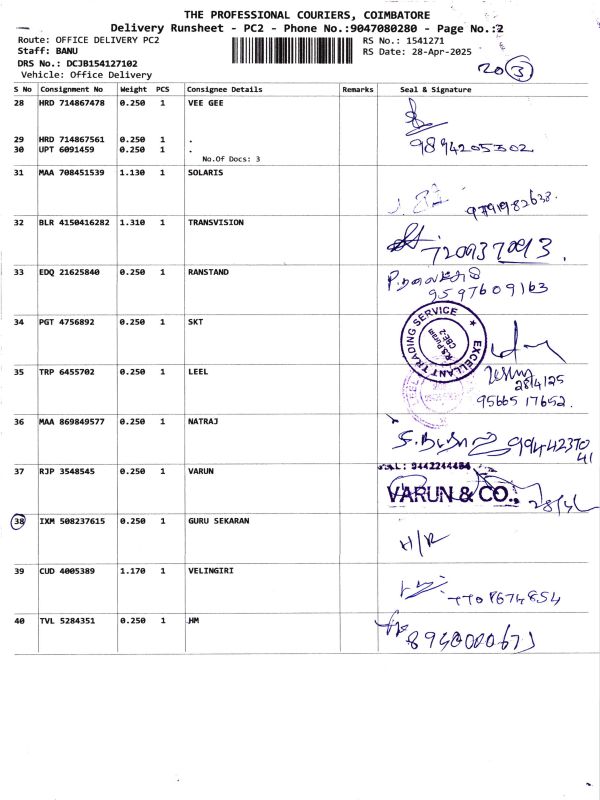 THE PROFESSIONAL COURIERS, COIMBATORE
Delivery Runsheet - PC2 - Phone No.:9047080280 - Page No.:2
Route: OFFICE DELIVERY PC2 RS No.: 1541271
Staff: BANU RS Date: 28-Apr-2025
DRS No.: DCJB154127102
Vehicle: Office Delivery
20 3
S No Consignment No Weight PCS Consignee Details Remarks Seal & Signature
28 HRD 714867478 0.250 1 VEE GEE
29 HRD 714867561 0.250 1 .
30 UPT 6091459 0.250 1 . 9894205302
No.Of Docs: 3
31 MAA 708451539 1.130 1 SOLARIS
9791982638.
32 BLR 4150416282 1.310 1 TRANSVISION
720937093.
33 EDQ 21625840 0.250 1 RANSTAND
9597609163
EXCELLANT TRADING SERVICE
R.S.Puram
CBE-2
34 PGT 4756892 0.250 1 SKT
35 TRP 6455702 0.250 1 LEEL
28/4/25
9566517652.
36 MAA 869849577 0.250 1 NATRAJ
9944237041
37 RJP 3548545 0.250 1 VARUN
VARUN & CO.,
38 IXM 508237615 0.250 1 GURU SEKARAN
H/R
39 CUD 4005389 1.170 1 VELINGIRI
7708674854
40 TVL 5284351 0.250 1 HM